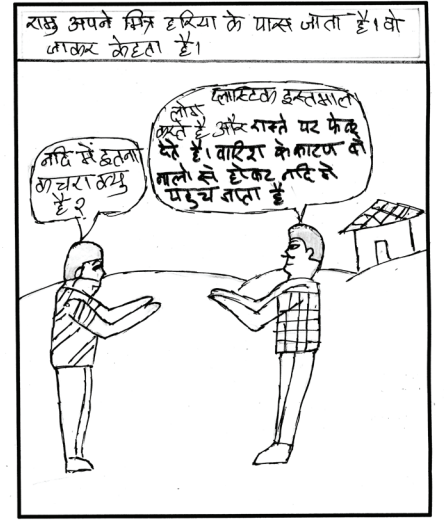 रामु अपने मित्र हरिया के पास जाता है। वो
जाकर केहता है।
नदि में इतना
कचरा क्यु
है?
लोग प्लास्टिक इस्तमाल
करते है और रास्ते पर फेक
देते है। बारिश के कारण वो
नालो से होकर नदि मे
पहुच जाता है